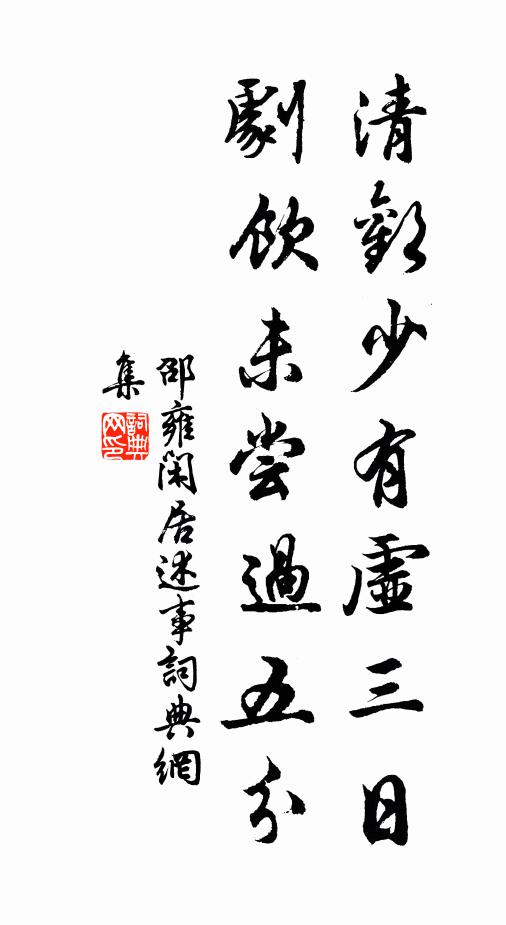 清歡少有虛三日
劇飲未嘗過五分
邵雍閑居述事詞典網
集
詞典
网印